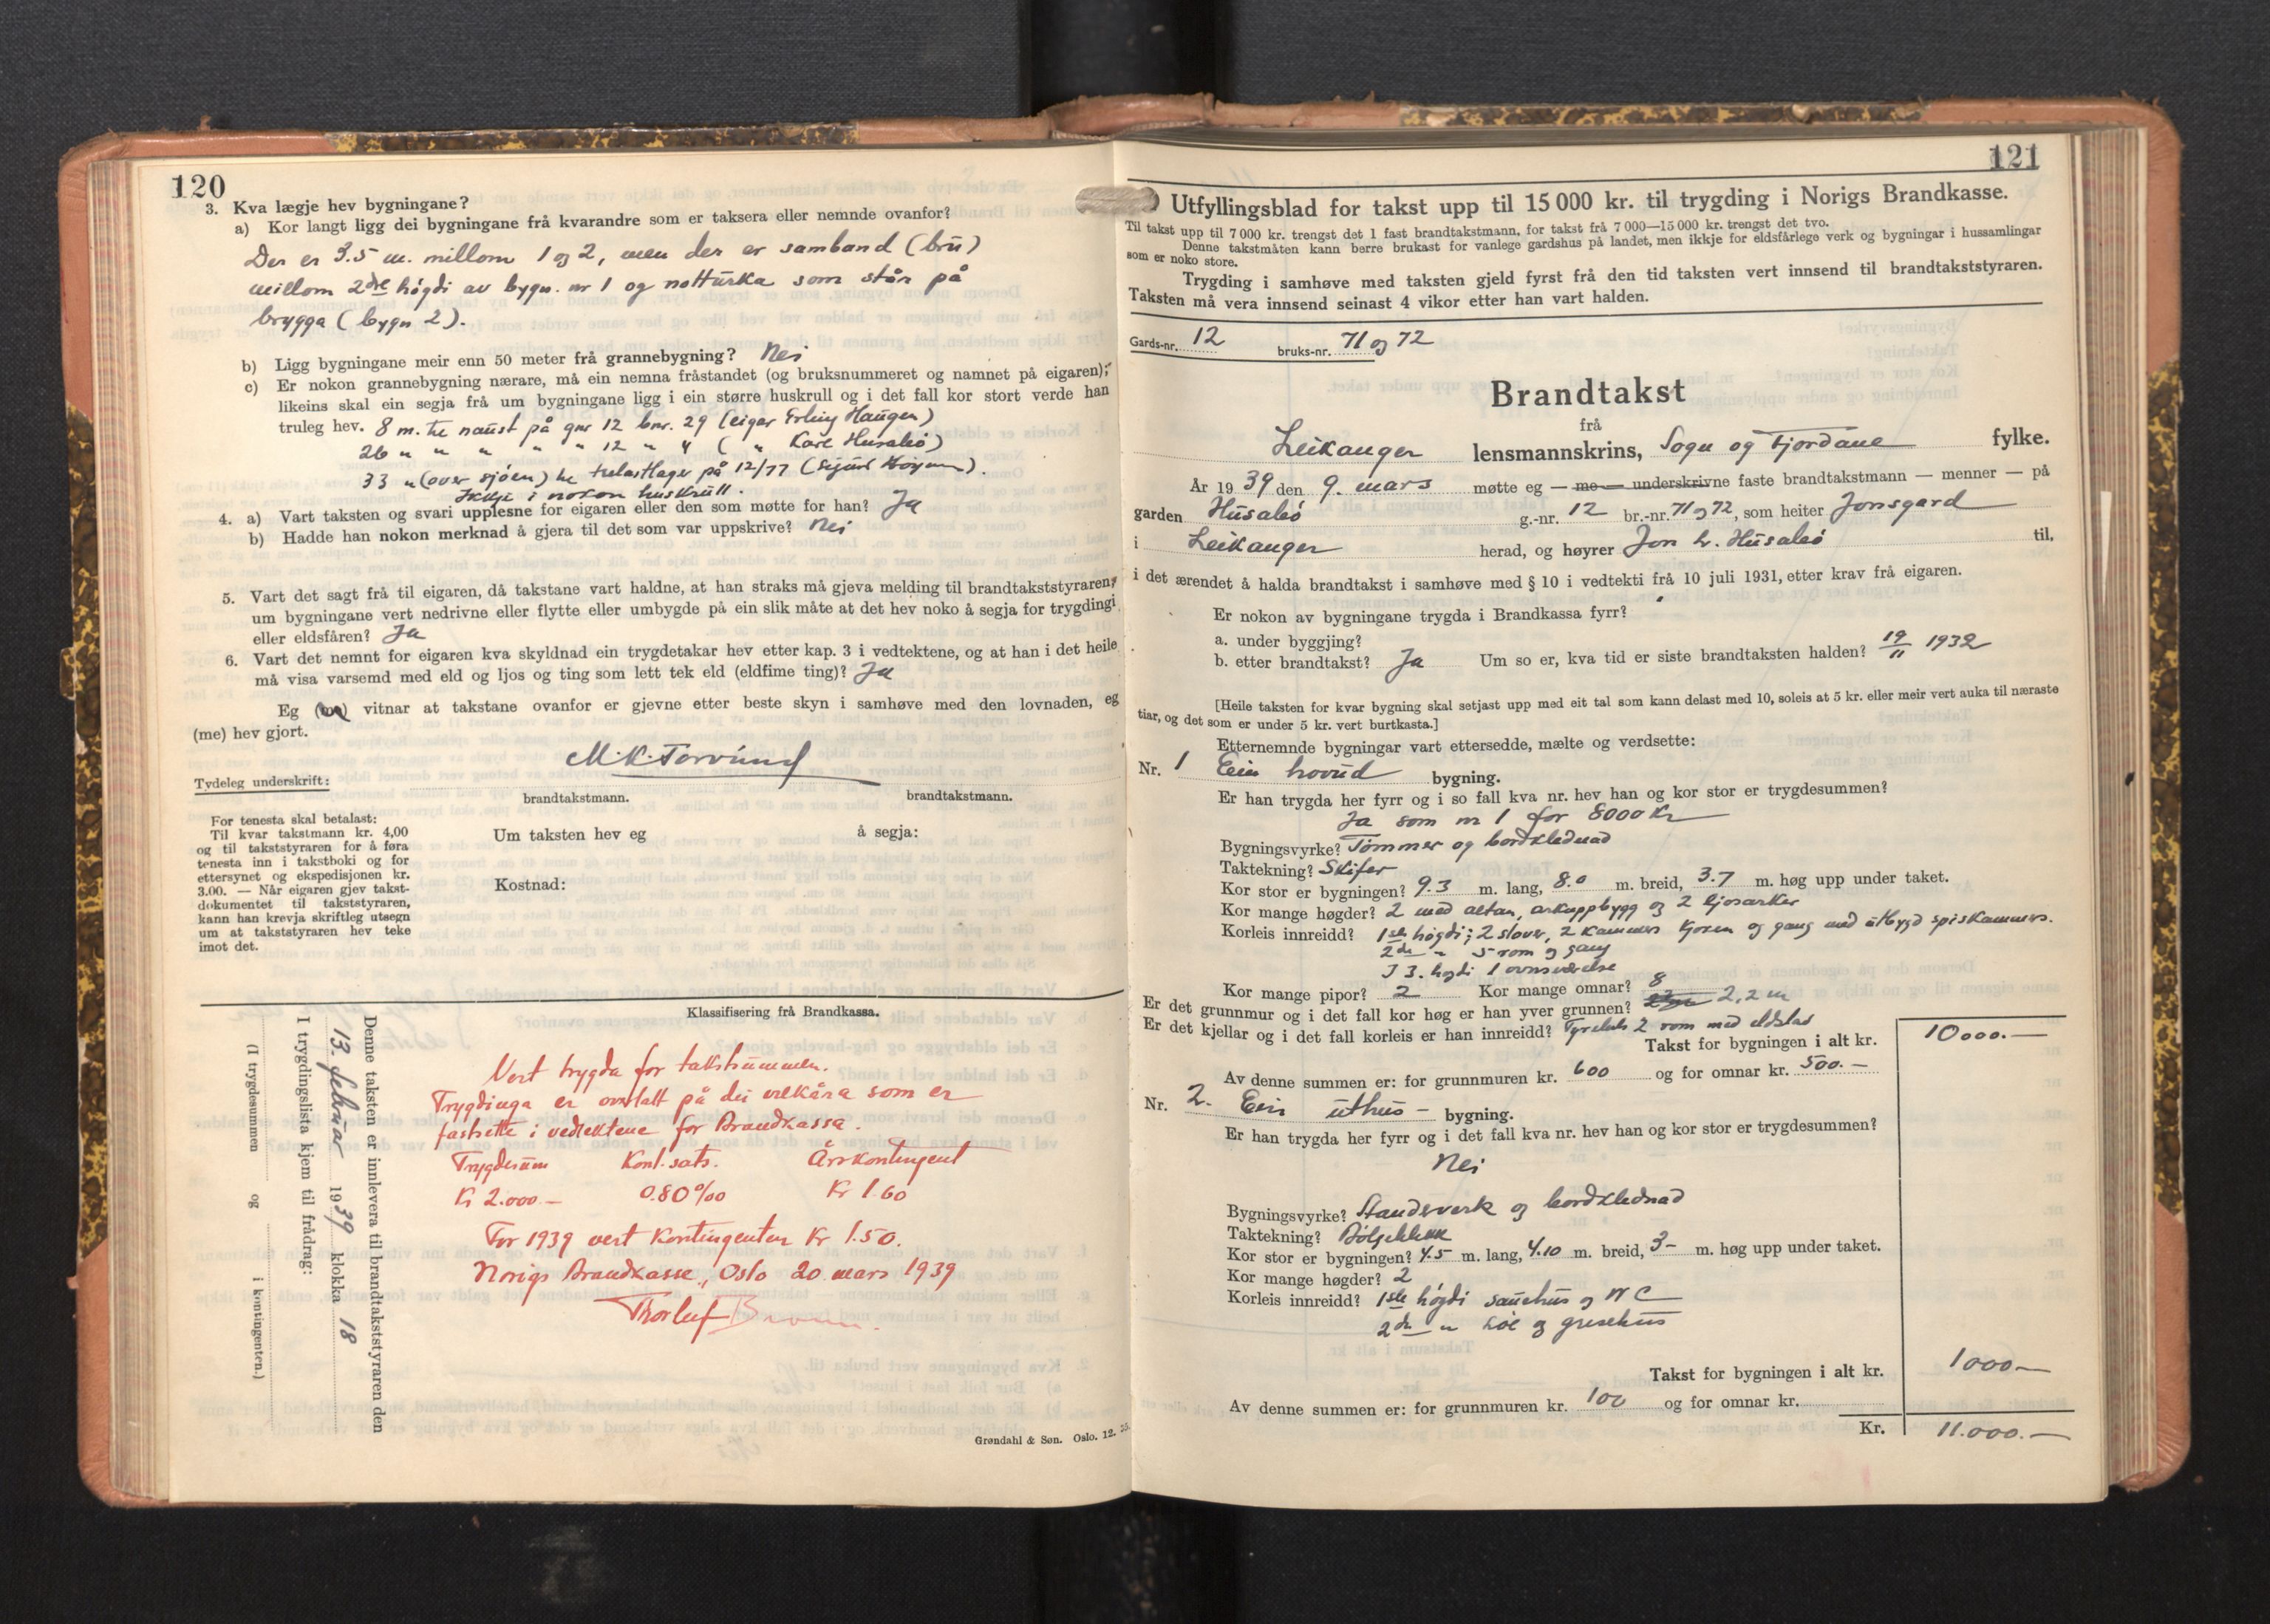 120
3. Kva lægje hev bygningane?
a) Kor langt ligg dei bygningane frå kvarandre som er taksera eller nemnde ovanfor?
Der er 3.5 m. millom 1 og 2, men der er samband (bru)
millom 2dre høgdi av bygn. nr 1 og notturka som står på
brygga (bygn 2).
b) Ligg bygningane meir enn 50 meter frå grannebygning? Nei
c) Er nokon grannebygning nærare, må ein nemna fråstandet (og bruksnummeret og namnet på eigaren);
likeins skal ein segja frå um bygningane ligg i ein større huskrull og i det fall kor stort verde han
truleg hev. 8 m. til naust på gnr 12 bnr. 29 (eigar Erling Haugen)
26 " " " " " 12 " 4 ( " Kåre Husabø)
33 " (over sjøen) til trelastlager på 12/77 (Sigurd
Ikkje i nokon huskrull.
4. a) Vart taksten og svari upplesne for eigaren eller den som møtte for han? Ja
b) Hadde han nokon merknad å gjera til det som var uppskrive? Nei
5. Vart det sagt frå til eigaren, då takstane vart haldne, at han straks må gjeva melding til brandtakststyraren,
um bygningane vert nedrivne eller flytte eller umbygde på ein slik måte at det hev noko å segja for trygdingi
eller eldsfåren? Ja
6. Vart det nemnt for eigaren kva skyldnad ein trygdetakar hev etter kap. 3 i vedtektene, og at han i det heile
må visa varsemd med eld og ljos og ting som lett tek eld (eldfime ting)? Ja
Eg (me) vitnar at takstane ovanfor er gjevne etter beste skyn i samhøve med den lovnaden, eg
(me) hev gjort.
M. K. Torvund
Tydeleg underskrift:
brandtakstmann. brandtakstmann.
For tenesta skal betalast:
Til kvar takstmann kr. 4,00
og til takststyraren for å føra
tenesta inn i takstboki og for
ettersynet og ekspedisjonen kr.
3.00. — Når eigaren gjev takst-
dokumentet til takststyraren,
kann han krevja skriftleg utsegn
um at takststyraren hev teke
imot det.
Um taksten hev eg å segja:
Kostnad:
Klassifisering frå Brandkassa.
Vert trygda for takstsummen.
Trygdinga er overlatt på dei vilkåra som er
fastsette i vedtektene for Brandkassa.
Trygdesum Kont.sats. Årskontingent
Kr 2.000.— 0.80 ‰ Kr 1.60
For 1939 vert kontingenten kr 1.50.
Norigs Brandkasse, Oslo 20 mars 1939
Thorleif
Denne taksten er innlevera til brandtakststyraren den
13. februar 1939 klokka 18
I trygdingslista kjem til frådrag:
(I trygdesummen og i kontingenten.)
Grøndahl & Søn. Oslo. 12. 35.
121
Utfyllingsblad for takst upp til 15 000 kr. til trygding i Norigs Brandkasse.
Til takst upp til 7 000 kr. trengst det 1 fast brandtakstmann, for takst frå 7 000—15 000 kr. trengst det tvo.
Denne takstmåten kann berre brukast for vanlege gardshus på landet, men ikkje for eldsfårlege verk og bygningar i hussamlingar
som er noko store.
Trygding i samhøve med taksten gjeld fyrst frå den tid taksten vert innsend til brandtakststyraren.
Taksten må vera innsend seinast 4 vikor etter han vart halden.
Gards-nr. 12 bruks-nr. 71 og 72
Brandtakst
frå
Leikanger lensmannskrins, Sogn og Fjordane fylke.
År 1939 den 9. mars møtte eg — me — underskrivne faste brandtakstmann — menner — på
garden Husabø g.-nr. 12 br.-nr. 71 og 72, som heiter Jonsgard
i Leikanger herad, og høyrer Jon L. Husabø til,
i det ærendet å halda brandtakst i samhøve med § 10 i vedtekti frå 10 juli 1931, etter krav frå eigaren.
Er nokon av bygningane trygda i Brandkassa fyrr?
a. under byggjing?
b. etter brandtakst? Ja Um so er, kva tid er siste brandtaksten halden? 19/11 1932
[Heile taksten for kvar bygning skal setjast upp med eit tal som kann delast med 10, soleis at 5 kr. eller meir vert auka til næraste
tiar, og det som er under 5 kr. vert burtkasta.]
Etternemnde bygningar vart ettersedde, mælte og verdsette:
Nr. 1 Ein hovud bygning.
Er han trygda her fyrr og i so fall kva nr. hev han og kor stor er trygdesummen?
Ja som nr 1 for 8000 kr
Bygningsvyrke? Tømmer og bordklednad
Taktekning? Skifer
Kor stor er bygningen? 9.3 m. lang, 8.0 m. breid, 3.7 m. høg upp under taket.
Kor mange høgder? 2 med altan, arkuppbygg og 2 ljosarker
Korleis innreidd? 1ste høgdi; 2 stover, 2 kammers kjøken og gang med utbygd spiskammers.
2dre " 5 rom og gang
I 3. høgdi 1
Kor mange pipor? 2 Kor mange omnar? 8
Er det grunnmur og i det fall kor høg er han yver grunnen? 2,2 m
Er det kjellar og i det fall korleis er han innreidd? 2 rom med eldstad
Takst for bygningen i alt kr. 10000.—
Av denne summen er: for grunnmuren kr. 600 og for omnar kr. 500.—
Nr. 2. Ein uthus- bygning.
Er han trygda her fyrr og i det fall kva nr. hev han og kor stor er trygdesummen?
Nei
Bygningsvyrke? Standverk og bordklednad
Taktekning? Bølgeblekk
Kor stor er bygningen? 4.5 m. lang, 4.10 m. breid, 3— m. høg upp under taket.
Kor mange høgder? 2
Korleis innreidd? 1ste høgdi sauehus og WC
2dre " Løe og grisehus
Takst for bygningen i alt kr. 1000—
Av denne summen er: for grunnmuren kr. 100 og for omnar kr.
Kr. 11.000.—